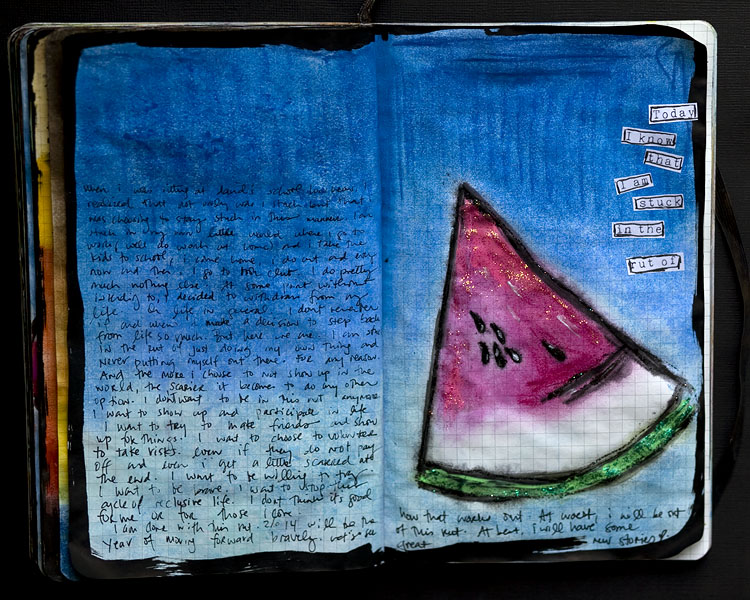 when i was sitting at david's school last week, i
realized that not only was i stuck but that i
was choosing to stay stuck in this manner. I am
stuck in my own little world where i go to
work, well do work at home and i take the
kids to school, i come home, i do art and every
now and then. i go to book club. I do pretty
much nothing else. At some point without
intending to, i decided to withdraw from my
life. Or life in general. I don't remember
if and when i made a decision to step back
from life so much. But here we are. I am stuck
in the rut of just doing my own thing and
never putting myself out there. for any reason.
And the more i choose to not show up in the
world, the scarier it becomes to do any other
option. I don't want to be in this rut anymore
I want to show up and participate in life
I want to try to make friends and show
up for things. I want to choose to volunteer
to take risks. even if they do not pay
off and even i get a little scarred at
the end. I want to be willing to try.
I want to be brave. I want to stop this
cycle of reclusive life. I don't think it's good
for me or for those i love.
I am done with this rut. 2014 will be the
year of moving forward bravely. let's see
Today
I know
that
I am
stuck
in the
rut of
how that works out. At worst, i will be out
of this rut. At best, i will have some
great new stories